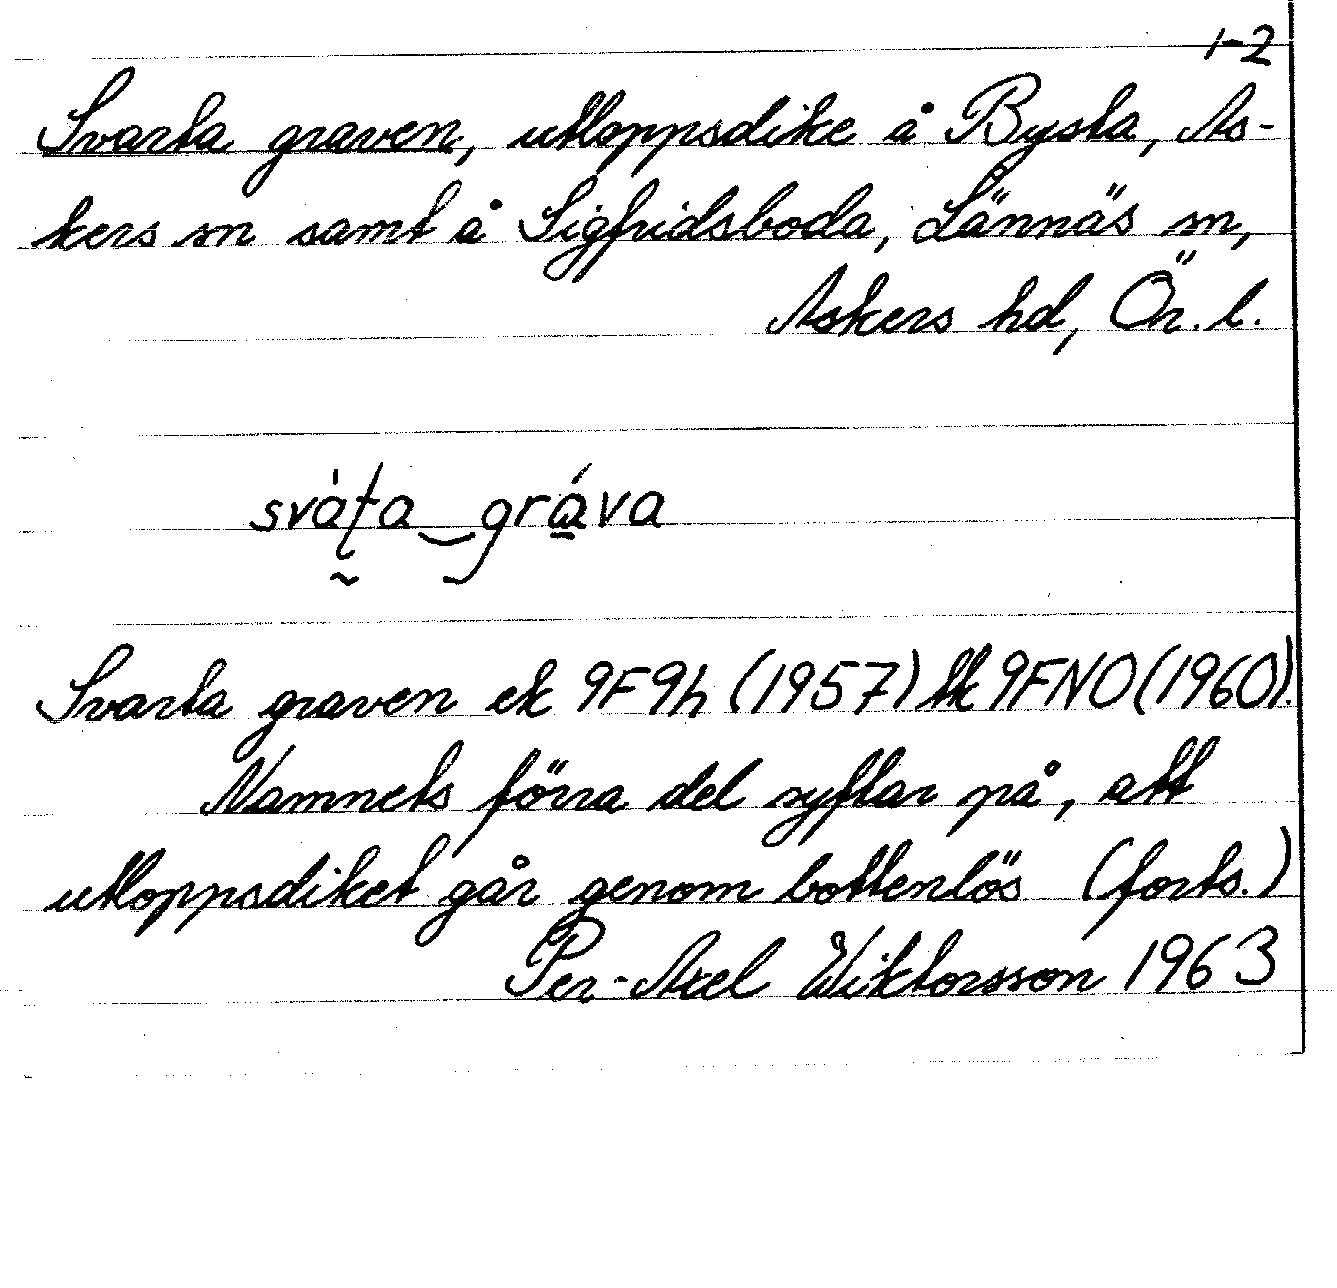 1-2
Svarta graven, utloppsdike å Bysta, As-
kers sn samt å Sigfridsboda, Lännäs sn,
Askers hd, Ör. l.
svàʈa‿gráva
Svarta graven ek 9F9h (1957) tk 9FNO (1960).
Namnets förra del syftar på, att
utloppsdiket går genom bottenlös (forts.)
Per-Axel Wiktorsson 1963